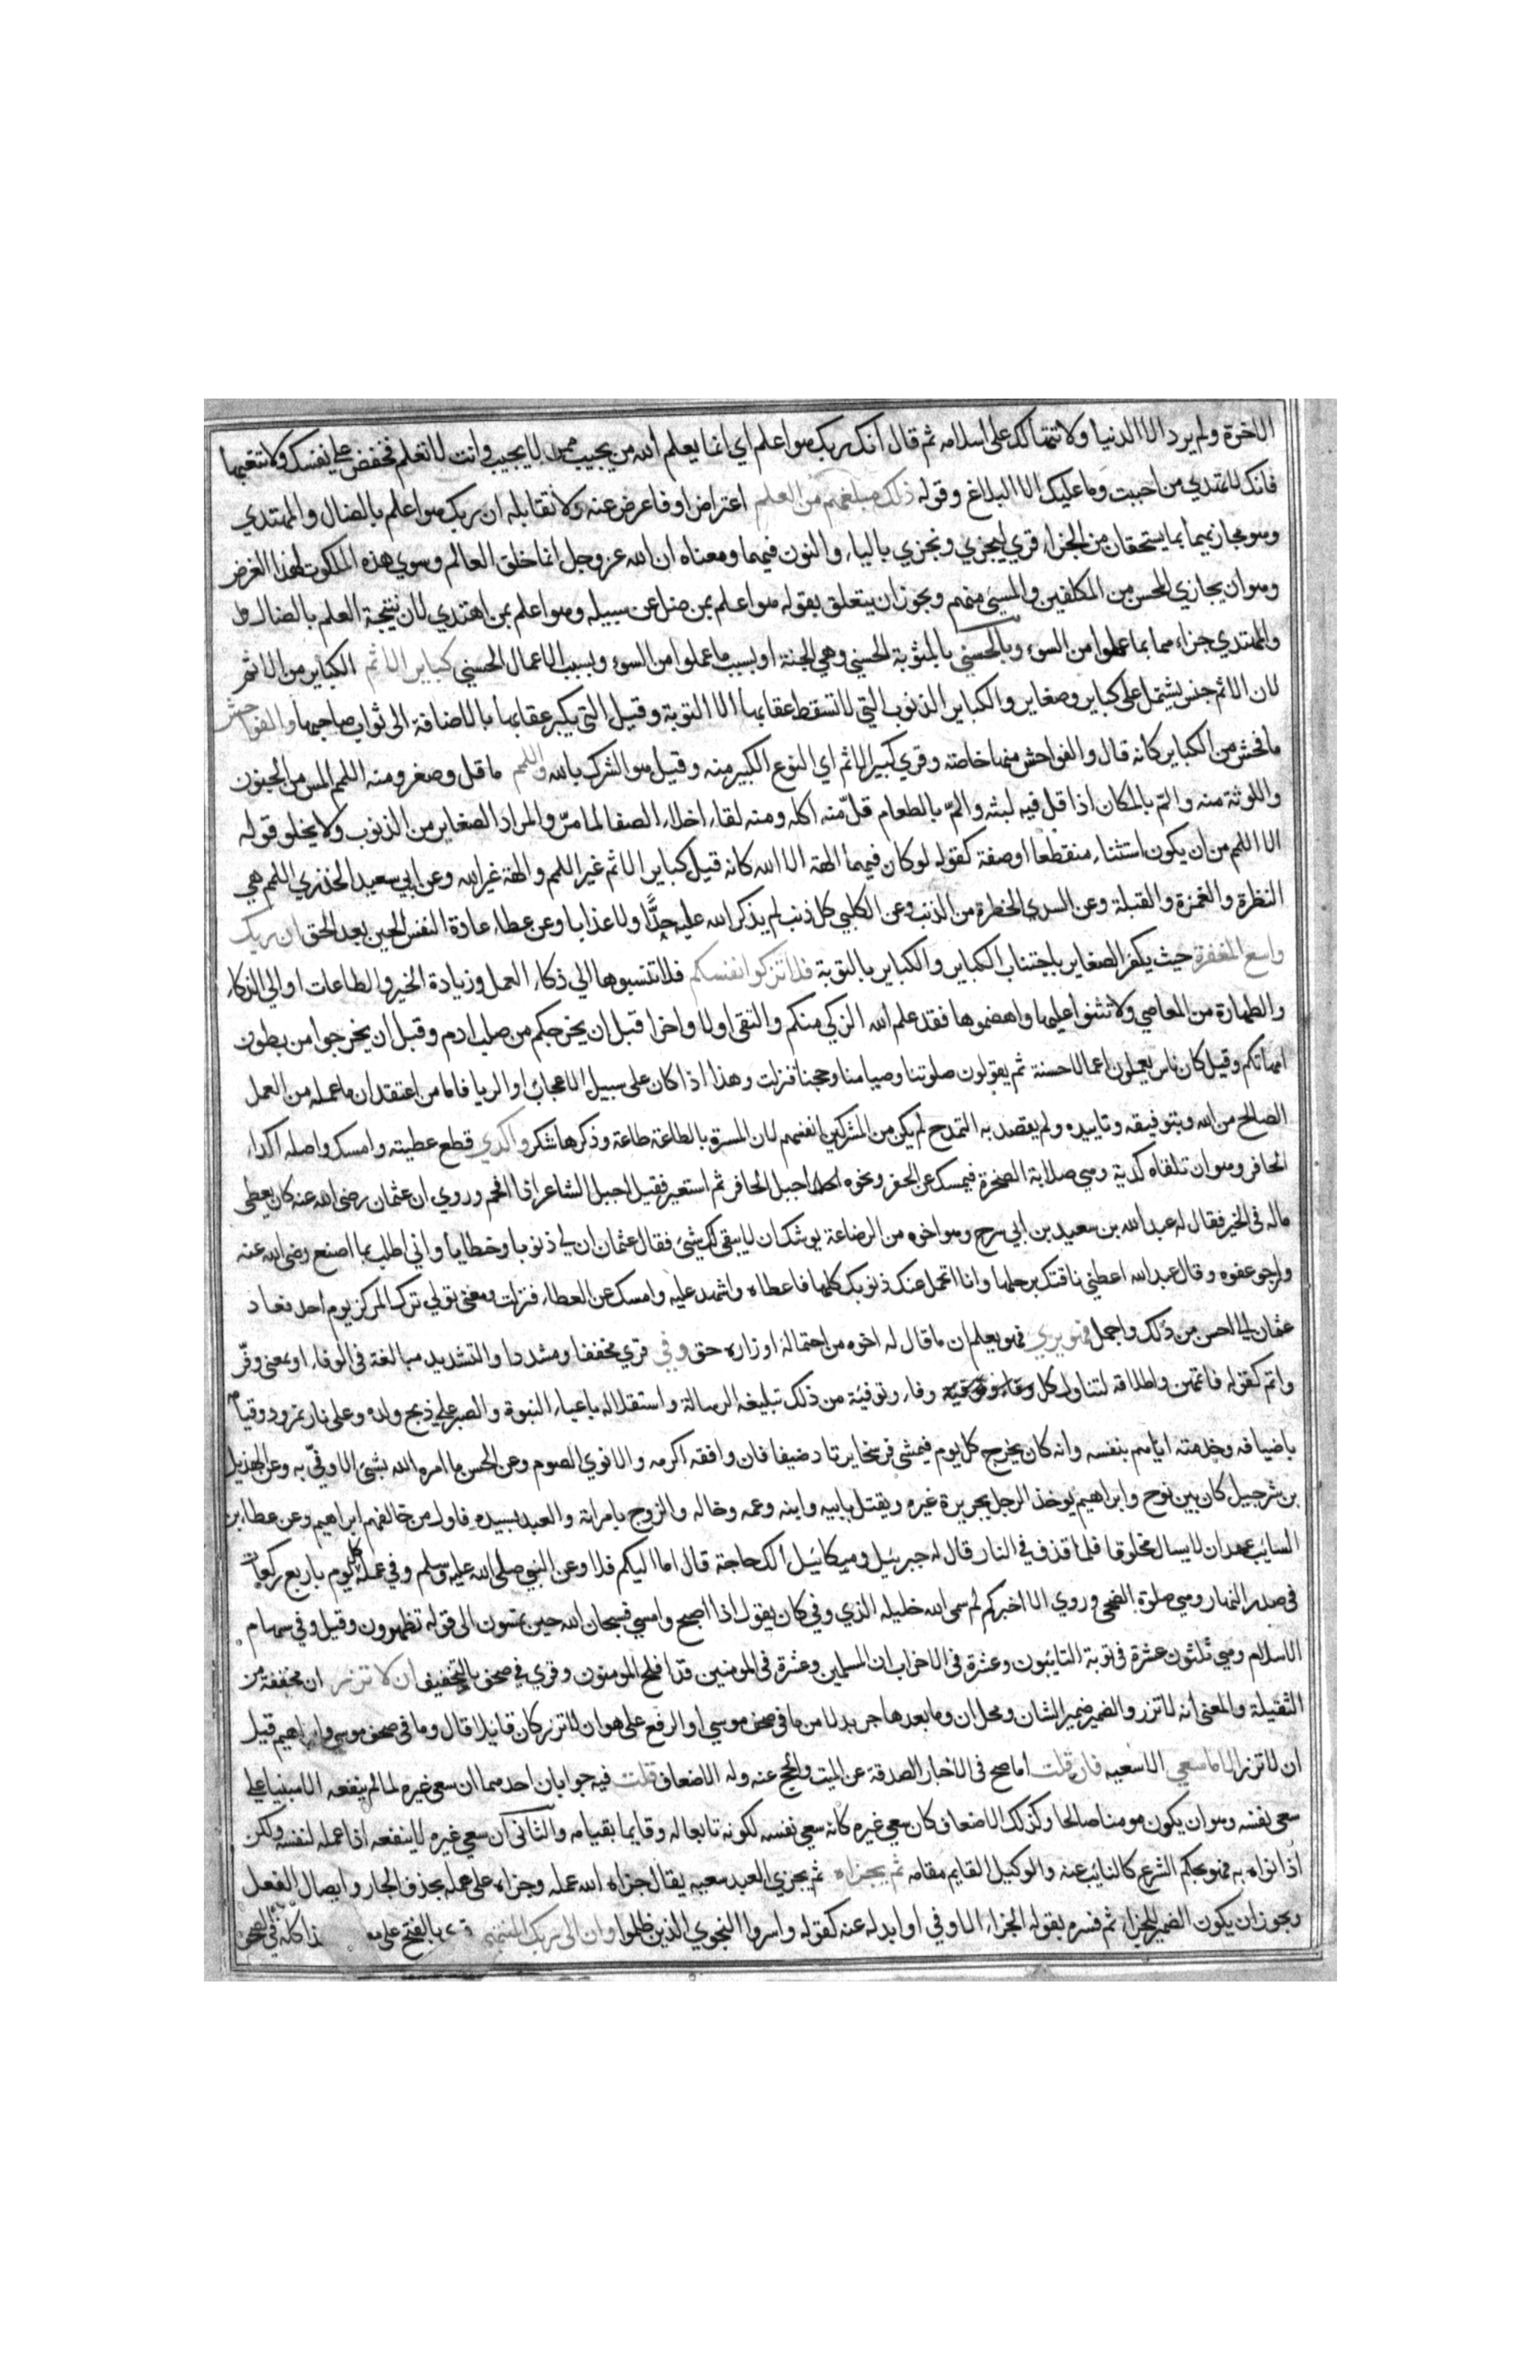 الاخرة ولم يرد الا الدنيا ولا تتهالك على اسلامه ثم قال ان ربك هو اعلم اي انما يعلم الله من يجيب ممن لا يجيب وانت لا تعلم فخفض على نفسك ولا تتعبها
فانك لا تهتدي من احببت وما عليك الا البلاغ وقوله ذلك مبلغهم من العلم اعتراض او فاعرض عنه ولا تقابله ان ربك هو اعلم بالضال والمهتدي
وهو مجازيهما بما يستحقان من الجزاء قري ليجزي ونجزي بالياء والنون فيهما ومعناه ان الله عز وجل انما خلق العالم وسوي هذه الملكوت لهذا الغرض
وهو ان يجازي المحسن من المكلفين والمسيء منهم ويجوز ان يتعلق بقوله هو اعلم بمن ضل عن سبيله وهو اعلم بمن اهتدي لان نتيجة العلم بالضال
والمهتدي جزاءهما بما عملوا من السوء وبالحسني بالمثوبة الحسني وهي الجنة او بسبب ما عملوا من السوء وبسبب الاعمال الحسني كباير الاثم الكباير من الاثم
لان الاثم جنس يشتمل على كباير وصغاير والكباير الذنوب التي لا تسقط عقابها الا التوبة وقيل التي يكبر عقابها بالاضافة الى ثواب صاحبها والفواحش
ما فحش من الكباير كانه قال والفواحش منها خاصة وقري كبير الاثم اي النوع الكبير منه وقيل هو الشرك بالله واللمم ما قل وصغر ومنه اللمم المس من الجنون
واللوثة منه والم بالمكان اذا قل فيه لبثه والم بالطعام قل منه اكله ومنه لقاء اخلاء الصفا لمام والمراد الصغاير من الذنوب ولا يخلو قوله
الا اللمم من ان يكون استثناء منقطعا او صفة كقوله لو كان فيهما الهة الا الله كانه قيل كباير الاثم غير اللمم والهة غير الله وعن ابي سعيد الخذري اللمم هي
النظرة والغمزة والقبلة وعن السدي الخطرة من الذنب وعن الكلبي كل ذنب لم يذكر الله عليه حدا ولا عذابا وعن عطاء عادة النفس الحين بعد الحق ان ربك
واسع المغفرة حيث يكفر الصغاير باجتناب الكباير والكباير بالتوبة فلا تزكوا انفسكم فلا تنسبوها الي ذكاء العمل وزيادة الخير والطاعات او الي الذكاء
والطهارة من المعاصي ولا تثنوا عليها واهضموها فقد علم الله الزكي منكم والتقى اولا واخرا قبل ان يخرجكم من صلب ادم وقبل ان يخرجوا من بطون
امهاتكم وقيل كان ناس يعملون اعمالا حسنة ثم يقولون صلوتنا وصيامنا وحجنا فنزلت وهذا اذا كان على سبيل الاعجاب او الريا فاما من اعتقد ان ما عمله من العمل
الصالح من الله وبتوفيقه وتاييده ولم يقصد به التمدح لم يكن من المشركين انفسهم لان المسرة بالطاعة طاعة وذكرها شكر واكدي قطع عطيته وامسك واصله اكداء
الحافر وهو ان تلقاه كدية وهي صلابة الصخرة فيمسك عن الحفر ونحوه اجبل الحافر ثم استعير فقيل اجبل الشاعر اذا افحم وروي ان عثمان رضى الله عنه كان يعطى
ماله فى الخير فقال له عبد الله بن سعيد بن ابي سرح وهو اخوه من الرضاعة يوشك ان لا يبقى لك شئ فقال عثمان ان لي ذنوبا وخطايا واني اطلب بما اصنع رضى الله عنه
وارجو عفوه وقال عبد الله اعطني ناقتك برحلها وانا اتحمل عنك ذنوبك كلها فاعطاه واشهد عليه وامسك عن العطاء فنزلت ومعنى تولي ترك المركز يوم احد فعاد
عثمان الي احسن من ذلك واجمل فهو يري فهو يعلم ان ما قال له اخوه من احتمالة اوزاره حق وفي قري مخففا ومشددا والتشديد مبالغة فى الوفاء او بمعنى وفر
واتم كقوله فاتمهن واطلاقه لتناول كل وفاء وتوفية من ذلك تبليغه الرسالة واستقلاله باعباء النبوة والصبر علي ذبح ولده وعلى نار نمرود وقيامه
باضيافه وخدمته اياهم بنفسه وانه كان يخرج كل يوم فيمشى فرسخا يرتاد ضيفا فان وافقه اكرمه والا نوي الصوم وعن الحسن ما امره الله بشئ الا وفي به وعن الهزيل
بن شرحبيل كان بين نوح وابراهيم يوخذ الرجل بجريرة غيره ويقتل بابيه وابنه وعمه وخاله والزوج بامراته والعبد بسيده فاول من خالفهم ابراهيم وعن عطا بن
السايب عهد ان لا يسال مخلوقا فلما قذف في النار قال له جبرئيل وميكائيل الك حاجة قال اما اليكم فلا وعن النبي صلى الله عليه وسلم وفي عمله كل يوم باربع ركعات
فى صدر النهار وهي صلوة الضحى وروي الا اخبركم لم سمى الله خليله الذي وفي كان يقول اذا اصبح وامسي فسبحان الله حين تمسون الى قوله تظهرون وقيل وفي سهام
الاسلام وهي ثلثون عشرة فى توبة التايبون وعشرة فى الاحزاب ان المسلمين وعشرة فى المومنين قد افلح المومنون وقري في صحف بالتخفيف ان لا تزر ان مخففة من
الثقيلة والمعنى انه لا تزر والضمير ضمير الشان ومحل ان وما بعدها جر بدلا من ما فى صحف موسي او الرفع على هو ان لا تزر كان قايلا قال وما فى صحف موسي وابراهيم قيل
ان لا تزر الا ما سعي الا سعيه فان قلت اما صح فى الاخبار الصدقة عن الميت والحج عنه وله الاضعاف قلت فيه جوابان احدهما ان سعى غيره لما لم ينفعه الا مبنيا على
سعي نفسه وهو ان يكون مومنا صالحا وكذلك الاضعاف كان سعي غيره كانه سعي نفسه لكونه تابعا له وقايما بقيامه والثانى ان سعي غيره لا ينفعه اذا عمله لنفسه ولكن
اذا نواه به فهو بحكم الشرع كالنايب عنه والوكيل القايم مقامه ثم يجزاه ثم يجزي العبد سعيه يقال جزاه الله عمله وجزاه على عمله بحذف الجار وايصال الفعل
ويجوز ان يكون الضمير للجزاء ثم فسره بقوله الجزاء الاوفي او ابدله عنه كقوله واسروا النجوي الذين ظلموا وان الى ربك المنتهى قري بالفتح على كله فى الصحف